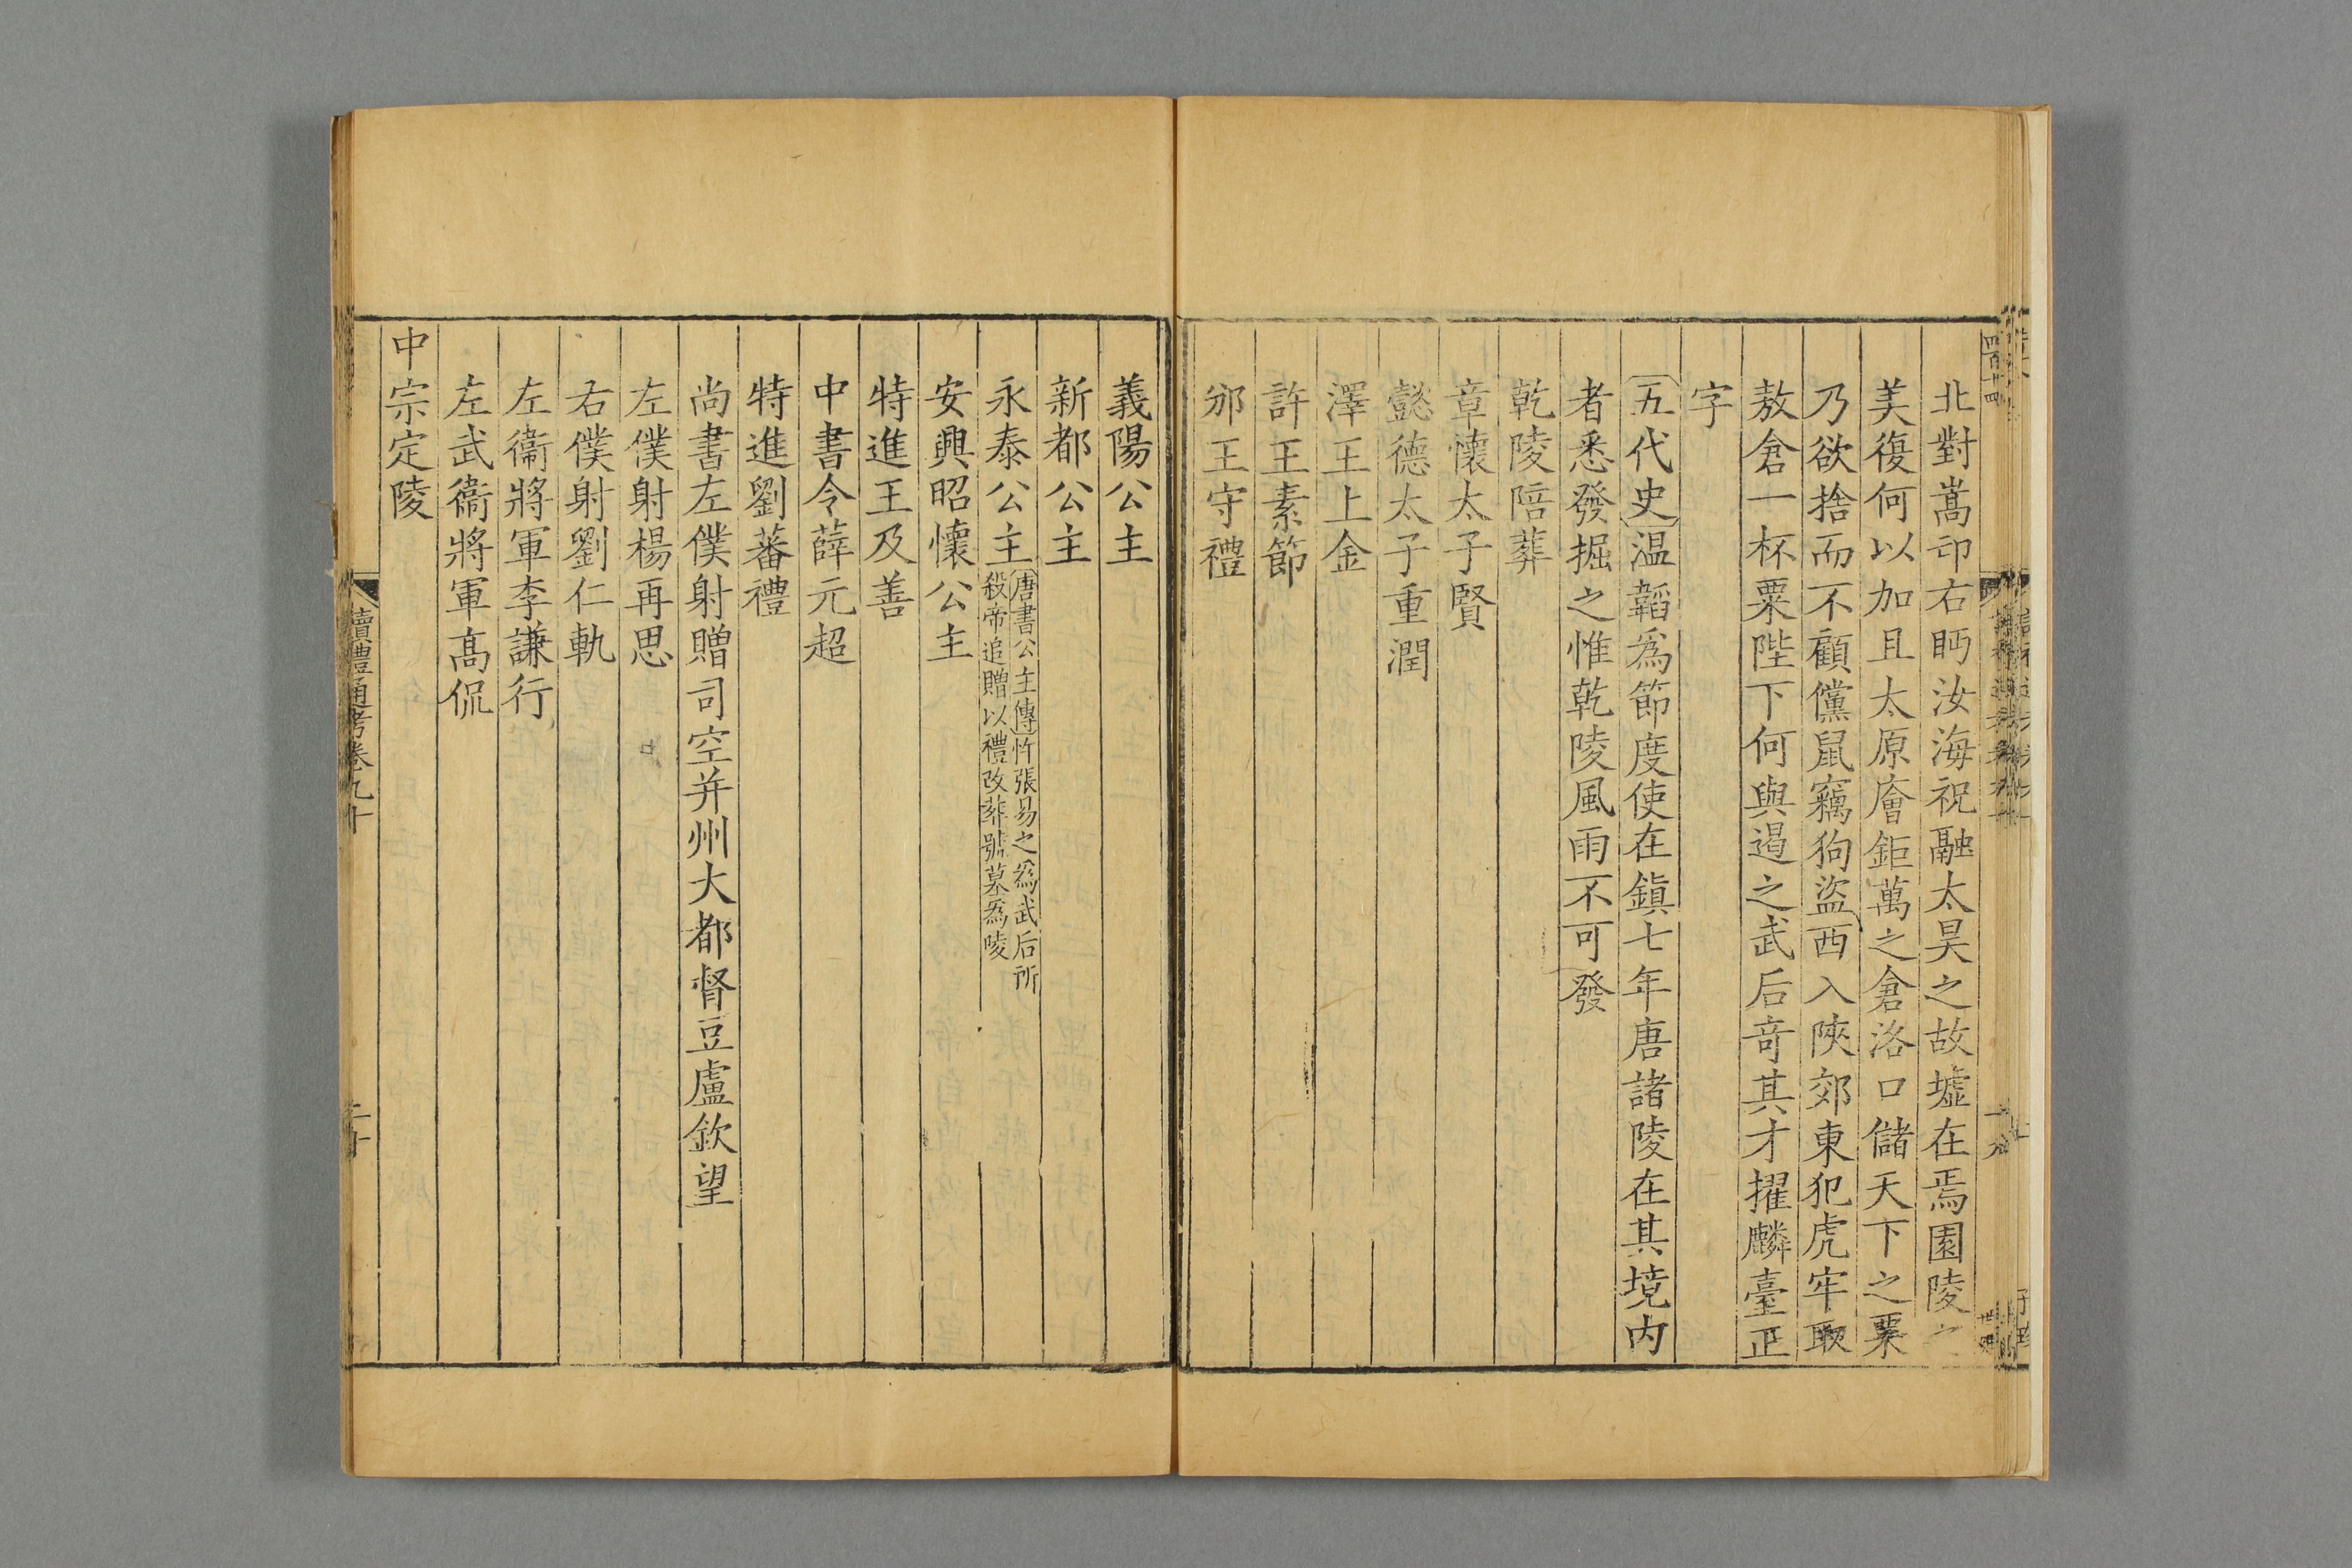 北對嵩卬右眄汝海祝融太昊之故墟在焉園陵之
美復何以加且太原廥鉅萬之倉洛口儲天下之粟
乃欲捨而不顧儻鼠竊狗盜西入陝郊東犯虎牢取
敖倉一杯粟陛下何與遏之武后竒其才擢麟臺正
字
五代史温韜爲節度使在鎮七年唐諸陵在其境内
者悉發掘之惟乾陵風雨不可發
乾陵陪葬
章懷太子賢
懿德太子重潤
澤王上金
許王素節
邠王守禮
義陽公主
新都公主
永泰公主唐書公主傳忤張易之爲武后所
殺帝追贈以禮改葬號墓爲陵
安興昭懷公主
特進王及善
中書令薛元超
特進劉審禮
尚書左僕射贈司空并州大都督豆盧欽望
左僕射楊再思
右僕射劉仁軌
左衞將軍李謹行
左武衞將軍高侃
中宗定陵
讀禮通考卷九十
二十